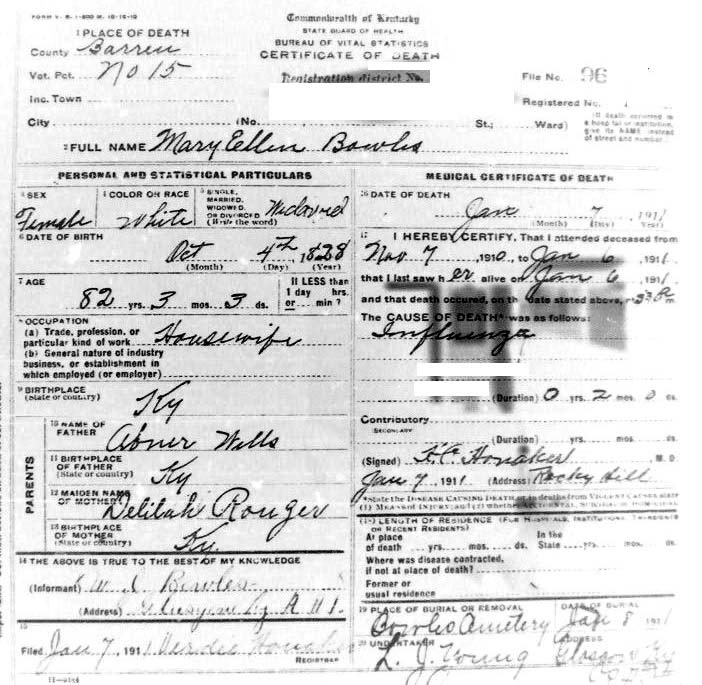 FORM V. S. 1-500 M. 10-15-10
Commonwealth of Kentucky
STATE BOARD OF HEALTH
BUREAU OF VITAL STATISTICS
CERTIFICATE OF DEATH
1 PLACE OF DEATH
County Barren
Vot. Pct. No 15
Inc. Town
City (No. St.; Ward)
Registration district No.
File No. 96
Registered No.
(If death occurred in
a hospital or institution,
give its NAME instead
of street and number.
2 FULL NAME Mary Ellen Bowles
PERSONAL AND STATISTICAL PARTICULARS
3 SEX
Female
4 COLOR OR RACE
White
5 SINGLE,
MARRIED,
WIDOWED
OR DIVORCED
(Write the word)
Widowed
6 DATE OF BIRTH
Oct 4th, 1828
(Month) (Day) (Year)
7 AGE
82 yrs. 3 mos. 3 ds.
If LESS than
1 day hrs.
or min ?
8 OCCUPATION
(a) Trade, profession, or
particular kind of work Housewife
(b) General nature of industry
business, or establishment in
which employed (or employer)
9 BIRTHPLACE
(State or country)
Ky
PARENTS
10 NAME OF
FATHER
Abner Wells
11 BIRTHPLACE
OF FATHER
(State or country)
Ky
12 MAIDEN NAME
OF MOTHER
Delilah Rouger
13 BIRTHPLACE
OF MOTHER
(State or country)
Ky.
14 THE ABOVE IS TRUE TO THE BEST OF MY KNOWLEDGE
(Informant) Bowles
(Address) Ky
15
Filed Jan 7, 1911
REGISTRAR
11-9184
MEDICAL CERTIFICATE OF DEATH
16 DATE OF DEATH
Jan 7, 1911
(Month) (Day) (Year)
17 I HEREBY CERTIFY, That I attended deceased from
Nov 7 1910, to Jan 6 1911
that I last saw her alive on Jan 6, 1911
and that death occured, on the date stated above, m
The CAUSE OF DEATH* was as follows:
Influenza
(Duration) 0 yrs. 2 mos. 0 ds.
Contributory
SECONDARY
(Duration) yrs. mos. ds.
(Signed) Honaker M. D.
Jan 7, 1911 (Address) Rocky Hill
*State the DISEASE CAUSING DEATH, or in deaths from VIOLENT CAUSES state
(1) MEANS OF INJURY; and (2) whether ACCIDENTAL, SUICIDAL or HOMICIDAL
(18) LENGTH OF RESIDENCE (FOR HOSPITALS, INSTITUTIONS, TRANSIENTS
OR RECENT RESIDENTS)
At place In the
of death yrs. mos. ds. State yrs. mos. ds.
Where was disease contracted,
if not at place of death?
Former or
usual residence
19 PLACE OF BURIAL OR REMOVAL
Bowles Cemetery
DATE OF BURIAL
Jan 8 1911
20 UNDERTAKER
L. J. Young
ADDRESS
Glasgow Ky